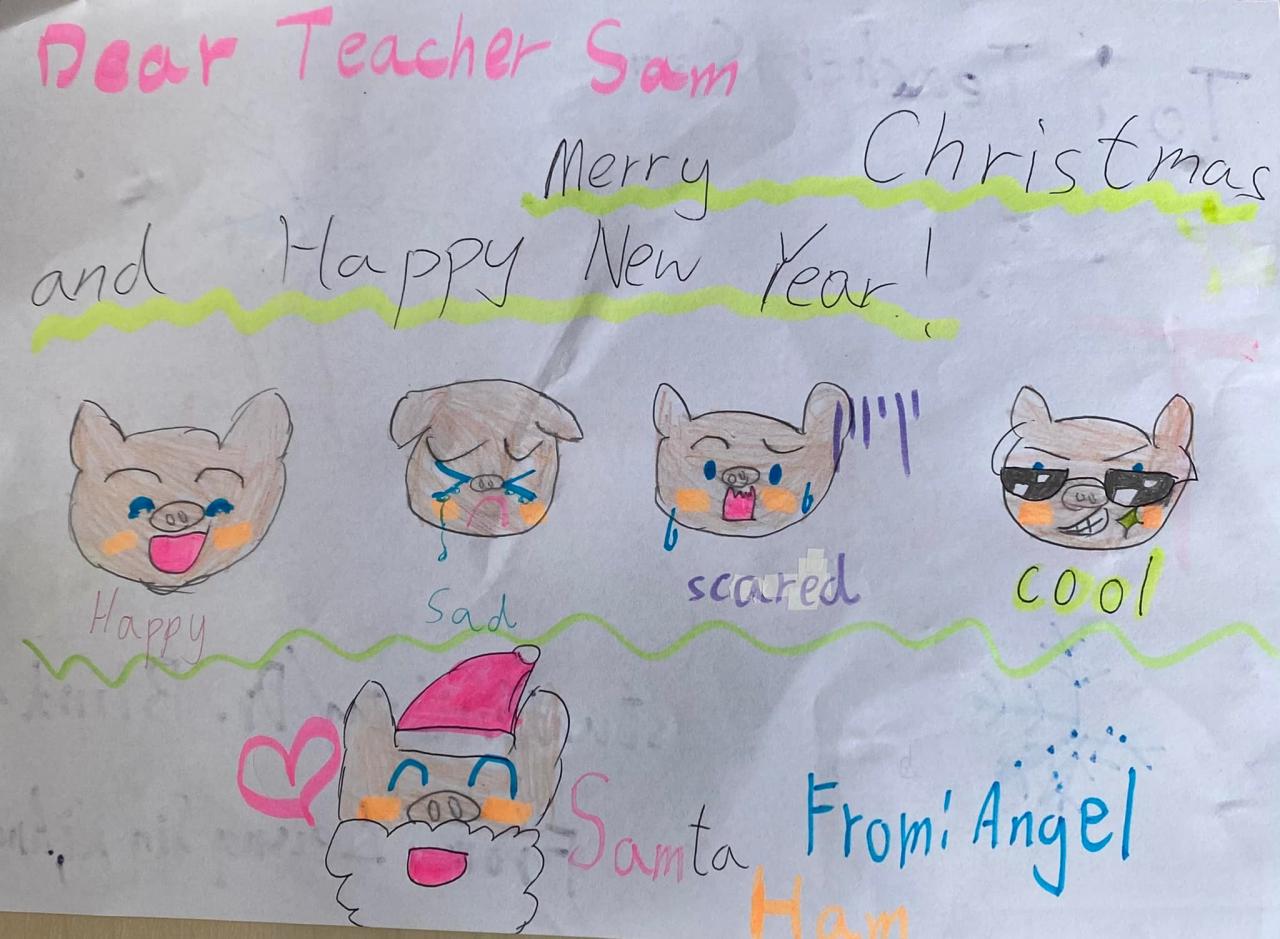 Dear Teacher Sam
Merry Christmas
and Happy New Year!
Happy
Sad
scared
cool
Samta
Ham
From: Angel